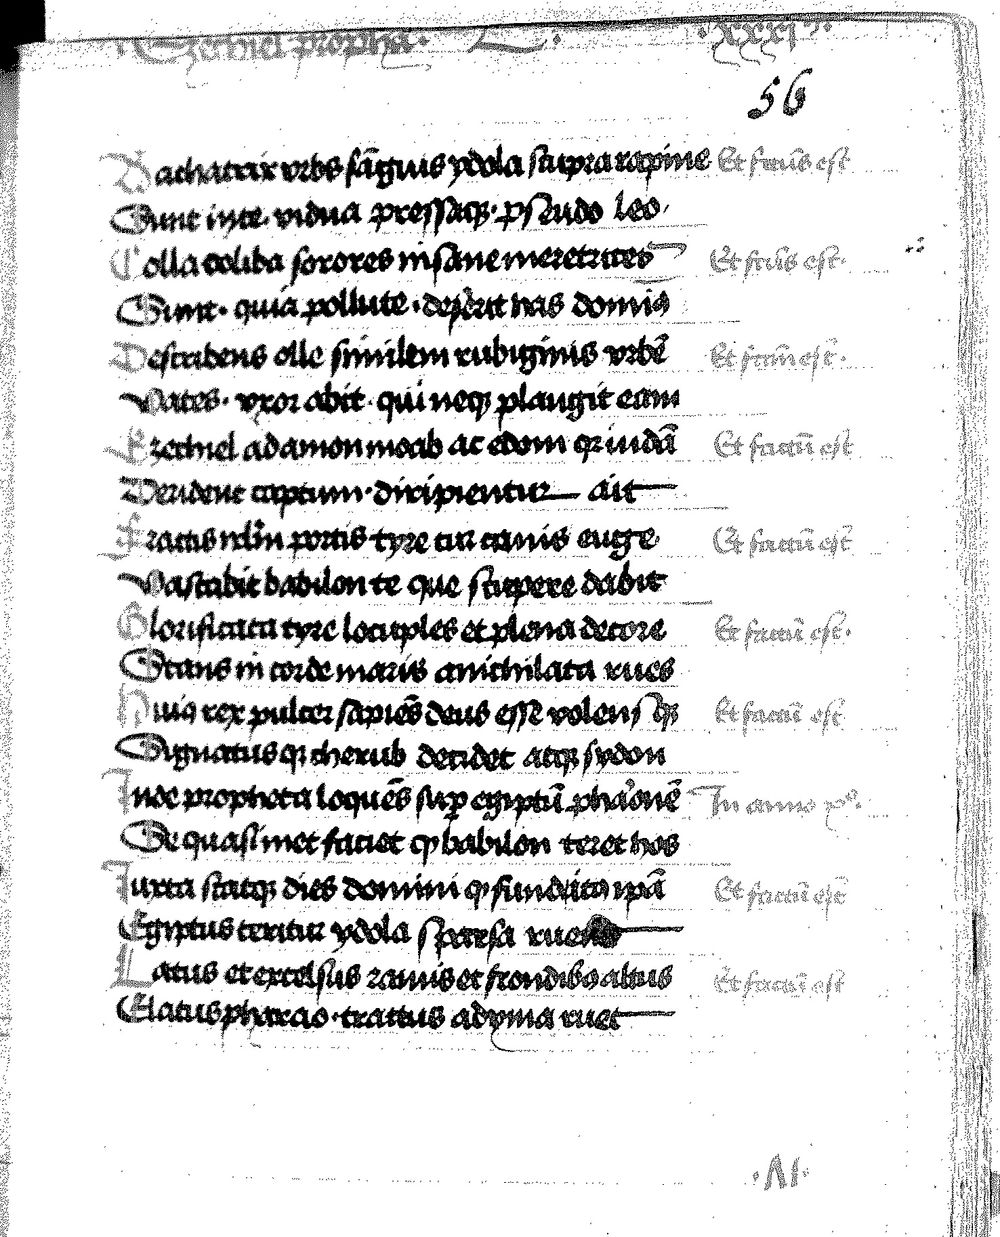 Ezechiel propha· L· ·xxxi·
56
Dachatrix vrbs sāguis ydola stupra rapine Et fctūs est
Sunt in te· vidua pressaq; pseudo leo·
Colla ooliba sorores insane meretrices Et fctūs est·
Sunt· quia pollute· deserit has domin9
Describens olle similem rubiginis vrbē Et factū est·
Vates· vxor abit· qui neq; plangit eam
Ezechiel ad amon moab ac edom qr iudā Et factū est
Derident captum· diripientur ait
Fractis irlm portis tyre cur canis euge· Et factū est
Vastabit babilon te que stupere dabit
Glorificata tyre locuples et plena decore Et factū est·
Stans in corde maris anichilata rues
Huiq rex pulcer sapiēs deus esse volens q; Et factū est
Signatus qr cherub decidet atq; sydon
Inde propheta loquēs sup egiptū pharonē In anno xº·
De quasi met faciet qr babilon teret hos
Iuxta statq; dies domini Et factū est
Egiptus teritur ydola sparsa ruent
Latus et excelsus ramis et frondib9 altus Et factū est
Elatus pharao· tractus ad yma ruet
·VI·